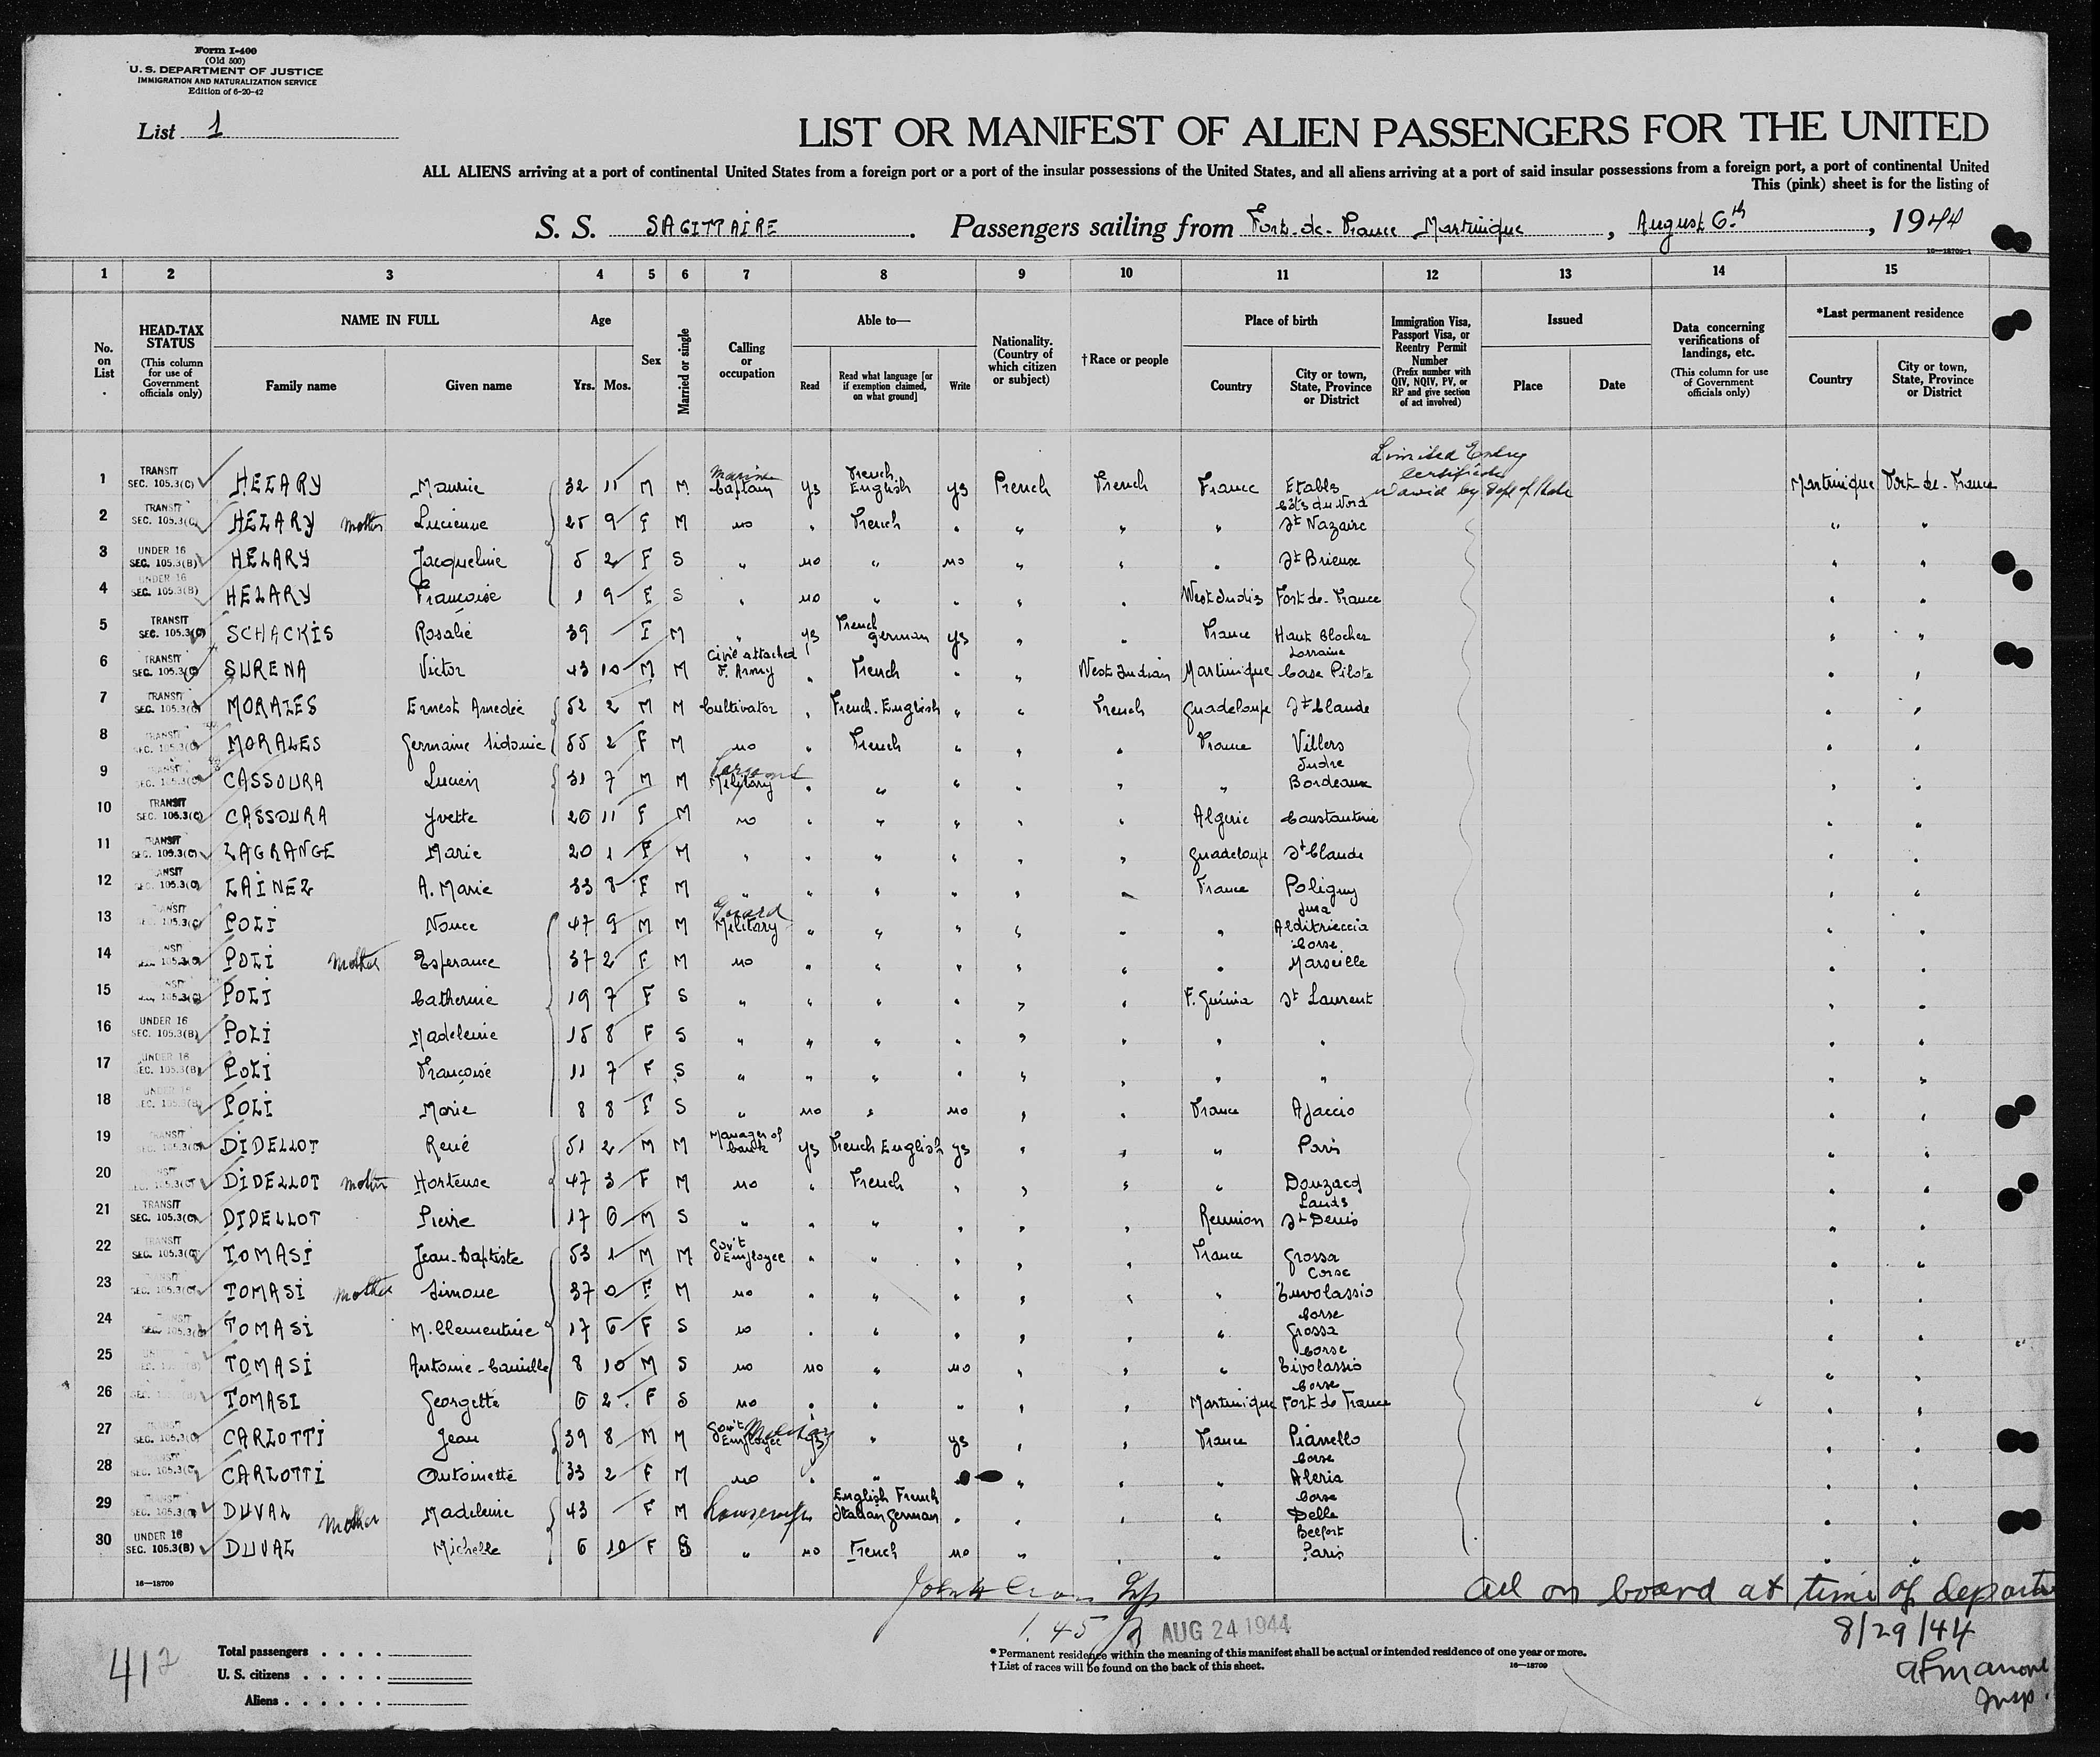 Form I-400
(Old 500)
U. S. DEPARTMENT OF JUSTICE
IMMIGRATION AND NATURALIZATION SERVICE
Edition of 6-20-42
List 1
LIST OR MANIFEST OF ALIEN PASSENGERS FOR THE UNITED
ALL ALIENS arriving at a port of continental United States from a foreign port or a port of the insular possessions of the United States, and all aliens arriving at a port of said insular possessions from a foreign port, a port of continental United
This (pink) sheet is for the listing of
S. S. SAGITTAIRE. Passengers sailing from Fort-de-France Martinique, August 6th, 1944
16—18709-1
1 2 3 4 5 6 7 8 9 10 11 12 13 14 15
No. on List
HEAD-TAX STATUS (This column for use of Government officials only)
NAME IN FULL Family name Given name
Age Yrs. Mos.
Sex
Married or single
Calling or occupation
Able to— Read Read what language [or if exemption claimed, on what ground] Write
Nationality. (Country of which citizen or subject)
†Race or people
Place of birth Country City or town, State, Province or District
Immigration Visa, Passport Visa, or Reentry Permit Number (Prefix number with QIV, NQIV, PV, or RP and give section of act involved)
Issued Place Date
Data concerning verifications of landings, etc. (This column for use of Government officials only)
*Last permanent residence Country City or town, State, Province or District
Limited Entry Certificate waived by Dept of State
1 TRANSIT SEC. 105.3(C) HELARY Maurice 32 11 M M Marine Captain yes French English yes French French France Etables Côts du Nord Martinique Fort-de-France
2 TRANSIT SEC. 105.3(C) HELARY mother Lucienne 25 9 F M no " French " " " " St Nazaire " "
3 UNDER 16 SEC. 105.3(B) HELARY Jacqueline 5 2 F S " no " no " " " St Brieux " "
4 UNDER 16 SEC. 105.3(B) HELARY Françoise 1 9 F S " no " " " " West Indis Fort-de-France " "
5 TRANSIT SEC. 105.3(C) SCHACKIS Rosalie 39 F M " yes French german yes " " France Haut Clocher Lorraine " "
6 TRANSIT SEC. 105.3(C) SURENA Victor 43 10 M M Civil attached F. Army " French " " West Indian Martinique Case Pilote " "
7 TRANSIT SEC. 105.3(C) MORALES Ernest Amedée 52 2 M M Cultivator " French-English " " French Guadeloupe St Claude " "
8 TRANSIT SEC. 105.3(C) MORALES Germaine Sidonie 55 2 F M no " French " " " France Villers Indre " "
9 TRANSIT SEC. 105.3(C) CASSOURA Lucien 31 7 M M Military " " " " " " Bordeaux " "
10 TRANSIT SEC. 105.3(C) CASSOURA Yvette 26 11 F M no " " " " " Algerie Constantine " "
11 TRANSIT SEC. 105.3(C) LAGRANGE Marie 20 1 F M " " " " " " Guadeloupe St Claude " "
12 TRANSIT SEC. 105.3(C) LAINEZ A. Marie 33 8 F M " " " " " " France Poligny Jura " "
13 TRANSIT SEC. 105.3(C) POLI Nonce 47 9 M M Guard Military " " " " " " Corse " "
14 TRANSIT SEC. 105.3(C) POLI mother Esperance 37 2 F M no " " " " " " Marseille " "
15 TRANSIT SEC. 105.3(C) POLI Catherine 19 7 F S " " " " " " F. Guinia St Laurent " "
16 UNDER 16 SEC. 105.3(B) POLI Madeleine 15 8 F S " " " " " " " " " "
17 UNDER 16 SEC. 105.3(B) POLI Françoise 11 7 F S " " " " " " " " " "
18 UNDER 16 SEC. 105.3(B) POLI Marie 8 8 F S " no " no " " France Ajaccio " "
19 TRANSIT SEC. 105.3(C) DIDELLOT René 51 2 M M Manager of bank yes French English yes " " " Paris " "
20 TRANSIT SEC. 105.3(C) DIDELLOT mother Hortense 47 3 F M no " French " " " " Donzacq Lands " "
21 TRANSIT SEC. 105.3(C) DIDELLOT Pierre 17 6 M S " " " " " " Reunion St Denis " "
22 TRANSIT SEC. 105.3(C) TOMASI Jean-Baptiste 53 1 M M Gov't Employee " " " " " France Grossa Corse " "
23 TRANSIT SEC. 105.3(C) TOMASI mother Simone 37 0 F M no " " " " " " Corse " "
24 TRANSIT SEC. 105.3(C) TOMASI M. Clementine 17 6 F S no " " " " " " Grossa Corse " "
25 UNDER 16 SEC. 105.3(B) TOMASI Antoine-Camille 8 10 M S no no " no " " " Corse " "
26 SEC. 105.3(B) TOMASI Georgette 6 2 F S no " " " " " Martinique Fort de France " "
27 TRANSIT SEC. 105.3(C) CARLOTTI Jean 39 8 M M Gov't Employee Military yes " yes " " France Pianello Corse " "
28 TRANSIT SEC. 105.3(C) CARLOTTI Antoinette 33 2 F M no " " " " " Aleria Corse " "
29 TRANSIT SEC. 105.3(C) DUVAL mother Madeleine 43 F M housewife English French Italian german " " " " Delle Belfort " "
30 UNDER 16 SEC. 105.3(B) DUVAL Michelle 6 10 F S " no French no " " " Paris " "
16—18709
all on board at time of departure
1.45 AUG 24 1944
8/29/44
Insp.
412
Total passengers
U. S. citizens
Aliens
* Permanent residence within the meaning of this manifest shall be actual or intended residence of one year or more.
† List of races will be found on the back of this sheet.
16—18709